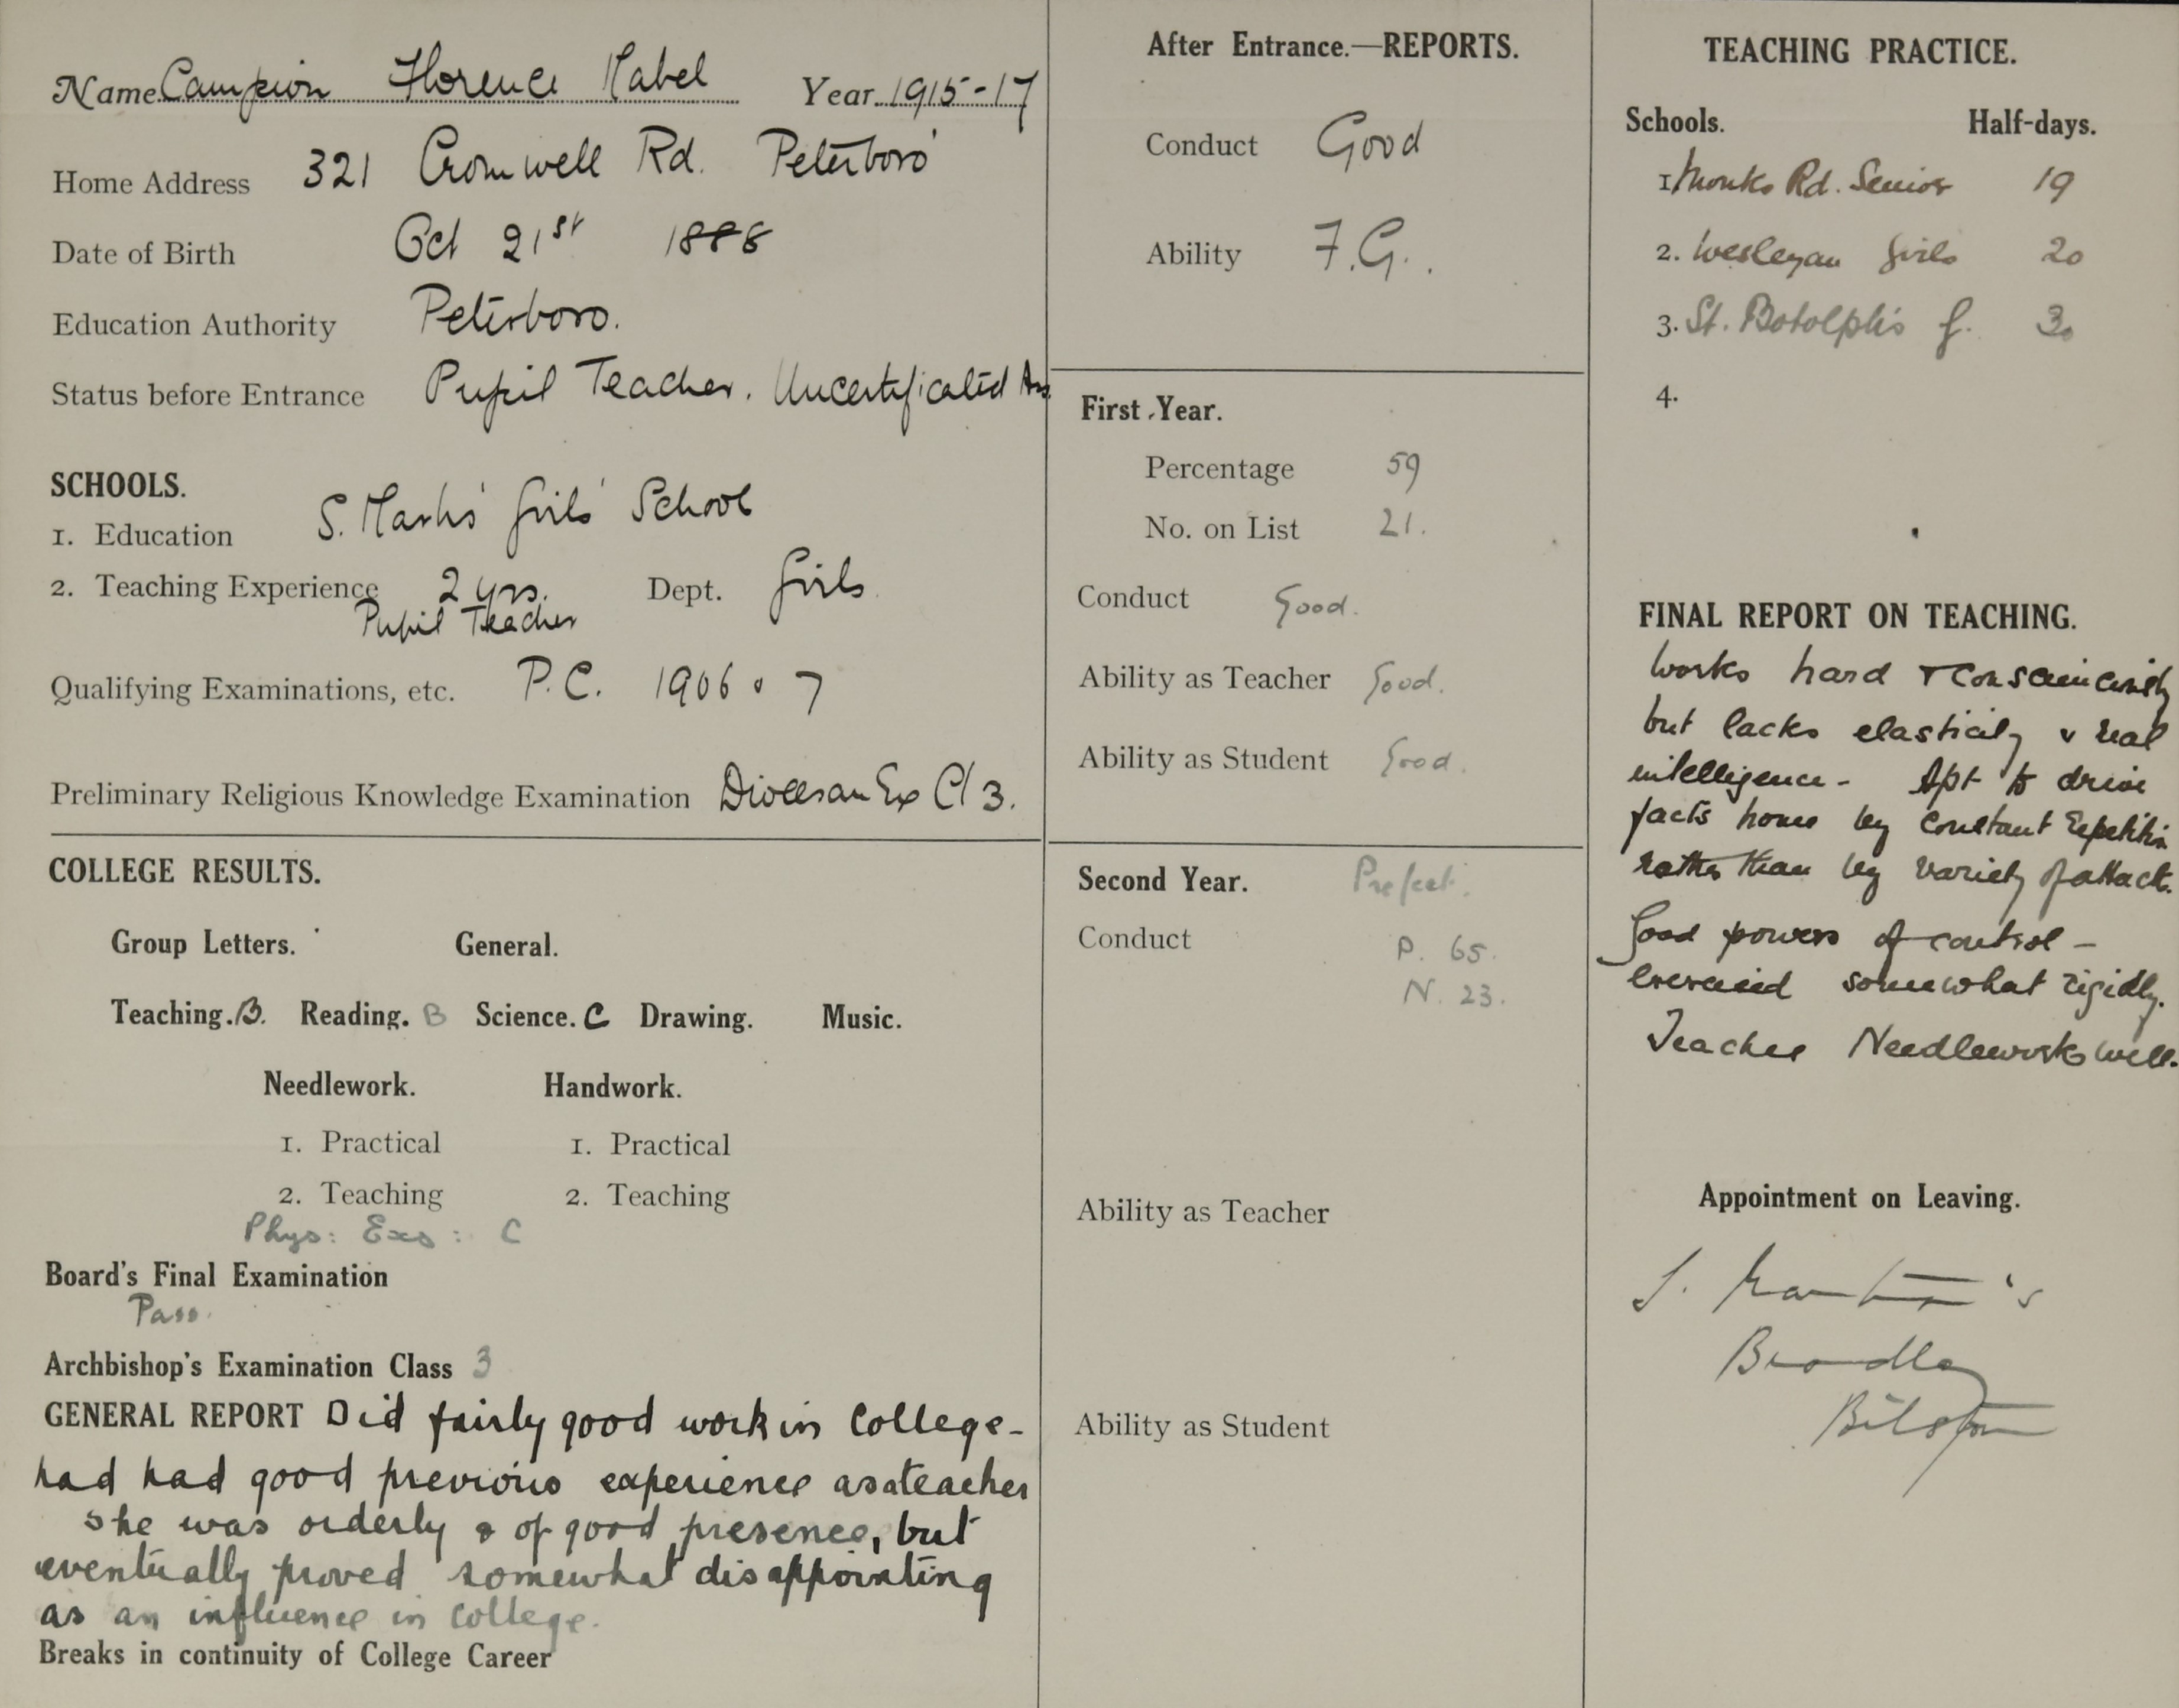 Name Campion Florence Mabel Year 1915-17
Home Address 321 Cromwell Rd. Peterboro'
Date of Birth Oct 21st 1888
Education Authority Peterboro.
Status before Entrance Pupil Teacher. Uncertificated Ass
SCHOOLS.
1. Education S. Mark's Girls' School
2. Teaching Experience 2 yrs. Dept. Girls
Pupil Teacher
Qualifying Examinations, etc. P.C. 1906 & 7
Preliminary Religious Knowledge Examination Diocesan Ex Cl 3.
COLLEGE RESULTS.
Group Letters. General.
Teaching. B. Reading. B Science. C Drawing. Music.
Needlework. Handwork.
1. Practical 1. Practical
2. Teaching 2. Teaching
Phys: Exs: C
Board's Final Examination
Pass.
Archbishop's Examination Class 3
GENERAL REPORT Did fairly good work in College-
had had good previous experience as a teacher
she was orderly & of good presence, but
eventually proved somewhat disappointing
as an influence in College.
Breaks in continuity of College Career
After Entrance.—REPORTS.
Conduct Good
Ability F.G..
First Year.
Percentage 59
No. on List 21.
Conduct Good.
Ability as Teacher Good.
Ability as Student Good.
Second Year. Prefect.
Conduct P. 65.
N. 23.
Ability as Teacher
Ability as Student
TEACHING PRACTICE.
Schools. Half-days.
1 Monks Rd. Senior 19
2. Wesleyan Girls 20
3. St. Botolph's G. 30
4.
FINAL REPORT ON TEACHING.
Works hard & conscienciously
but lacks elasticity & real
intelligence - Apt to drive
facts home by constant repetition
rather than by variety of attack.
Good powers of control -
exercised somewhat rigidly.
Teaches Needlework well.
Appointment on Leaving.
S. Martin's
Bradley
Bilston